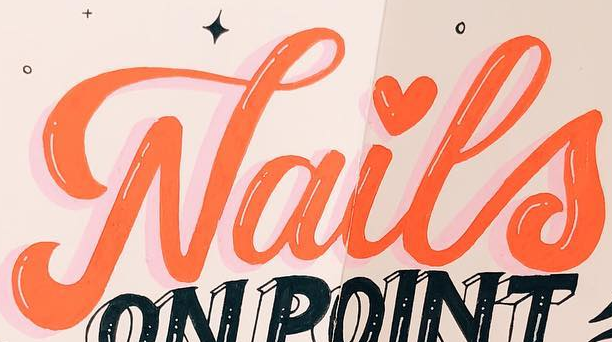 Nails
ON POINT